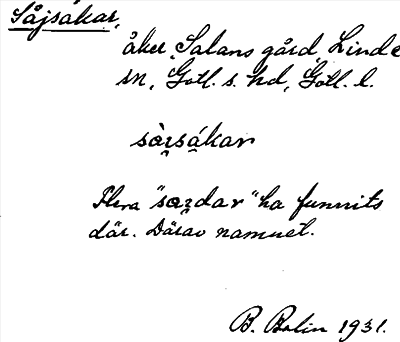 Såjsakar,
åker, Salans gård, Linde
sn, Gotl. s. hd, Gotl. l.
Flera "sɑɪdar" ha funnits
där. Därav namnet.
B. Bolin 1931.